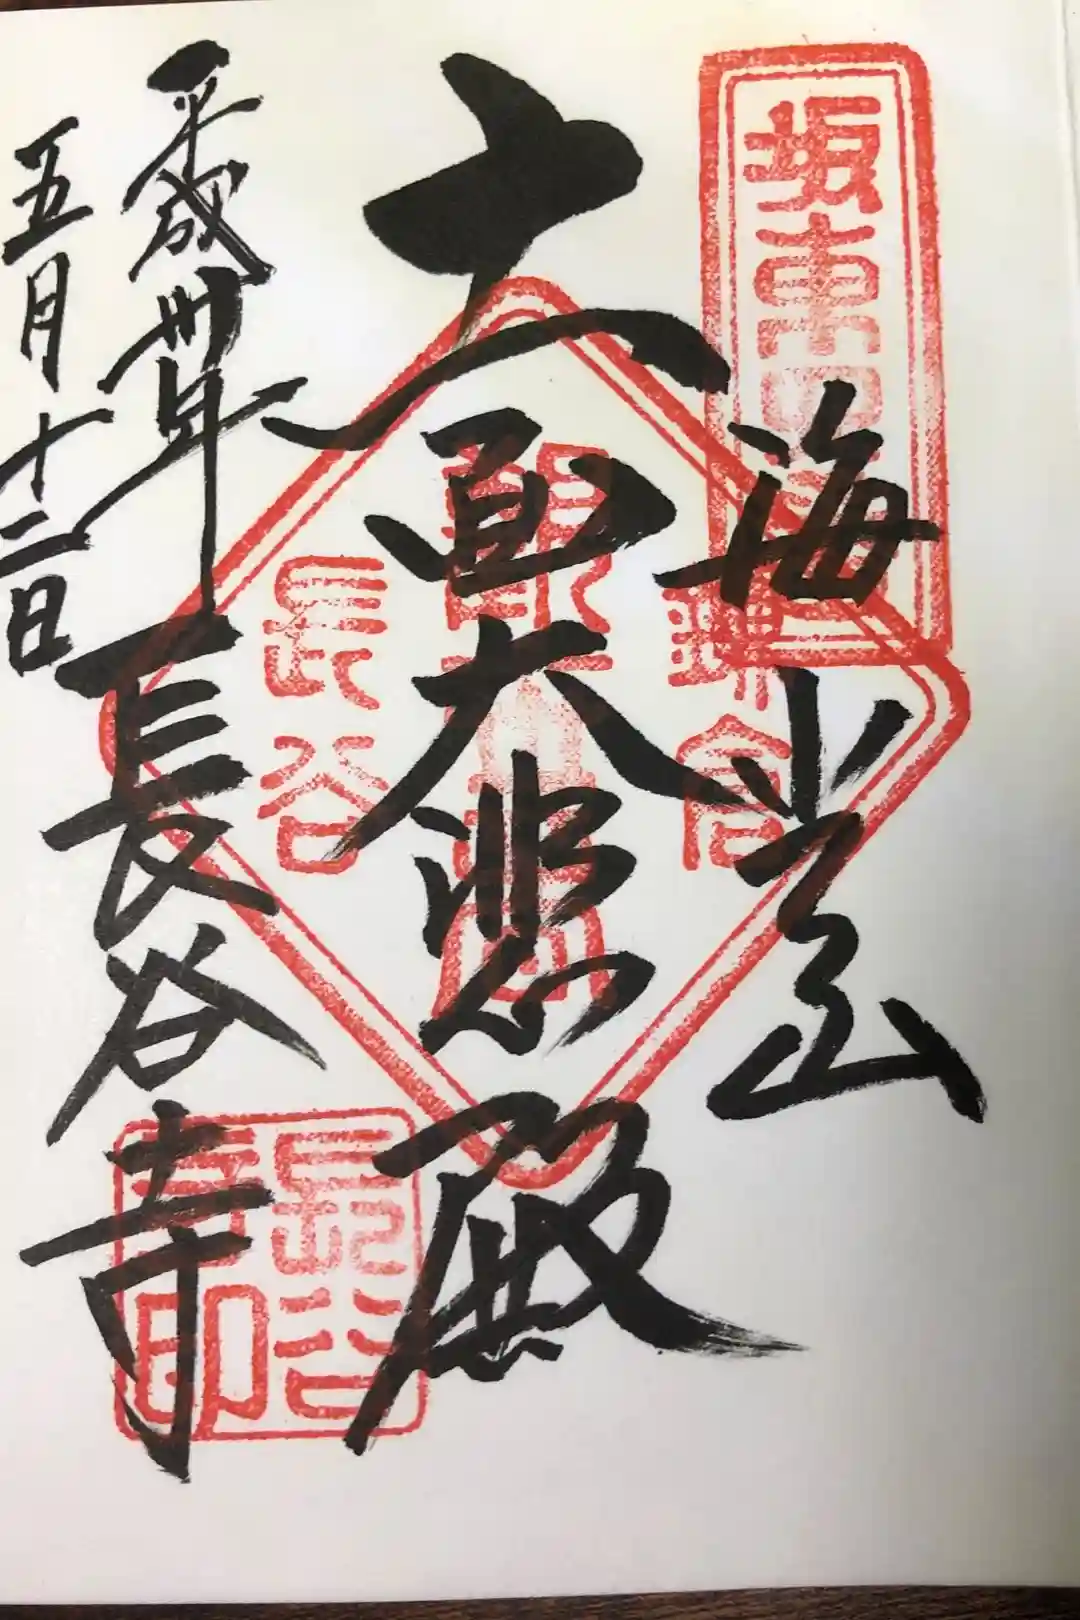 坂東四
海光山
十一面大悲殿
鎌倉
長谷
平成卅年
五月十二日
長谷寺
長谷寺印